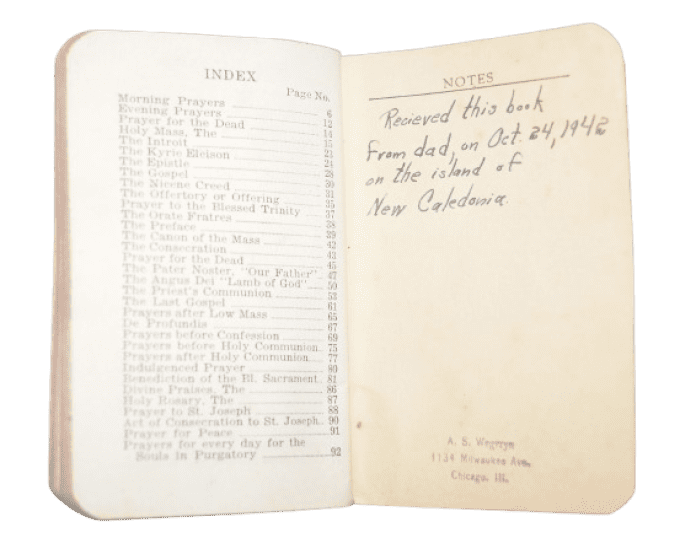 INDEX
Page No.
Morning Prayers 6
Evening Prayers 12
Prayer for the Dead 14
Holy Mass, The 15
The Introit 23
The Kyrie Eleison 24
The Epistle 28
The Gospel 30
The Nicene Creed 31
The Offertory or Offering 35
Prayer to the Blessed Trinity 37
The Orate Fratres 38
The Preface 39
The Canon of the Mass 42
The Consecration 43
Prayer for the Dead 45
The Pater Noster, "Our Father" 47
The Angus Dei "Lamb of God" 50
The Priest's Communion 53
The Last Gospel 61
Prayers after Low Mass 65
De Profundis 67
Prayers before Confession 69
Prayers before Holy Communion 75
Prayers after Holy Communion 77
Indulgenced Prayer 80
Benediction of the Bl. Sacrament 81
Divine Praises, The 86
Holy Rosary, The 87
Prayer to St. Joseph 88
Act of Consecration to St. Joseph 90
Prayer for Peace 91
Prayers for every day for the
Souls in Purgatory 92
NOTES
Recieved this book
from dad, on Oct. 24, 1942
on the island of
New Caledonia.
A. S. Wegrzyn
1134 Milwaukee Ave.
Chicago, Ill.